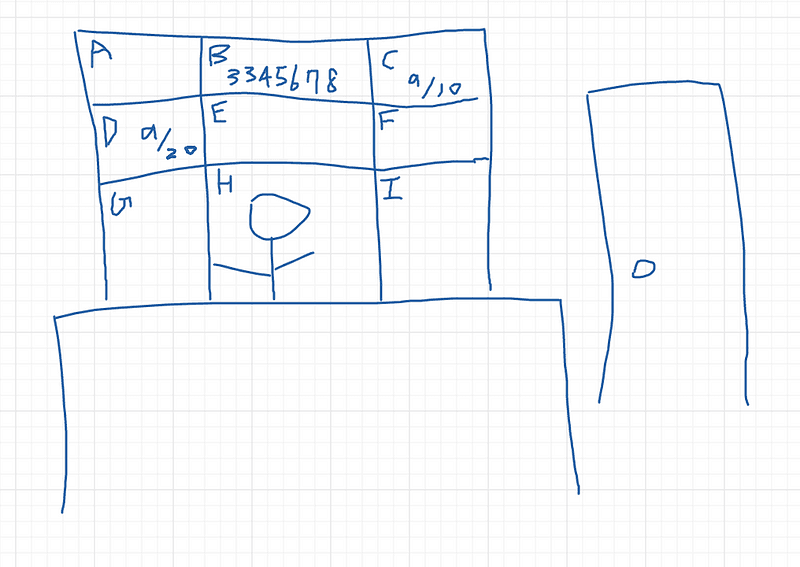 A
B
3345678
C
9/10
D 9/20
E
F
G
H
I